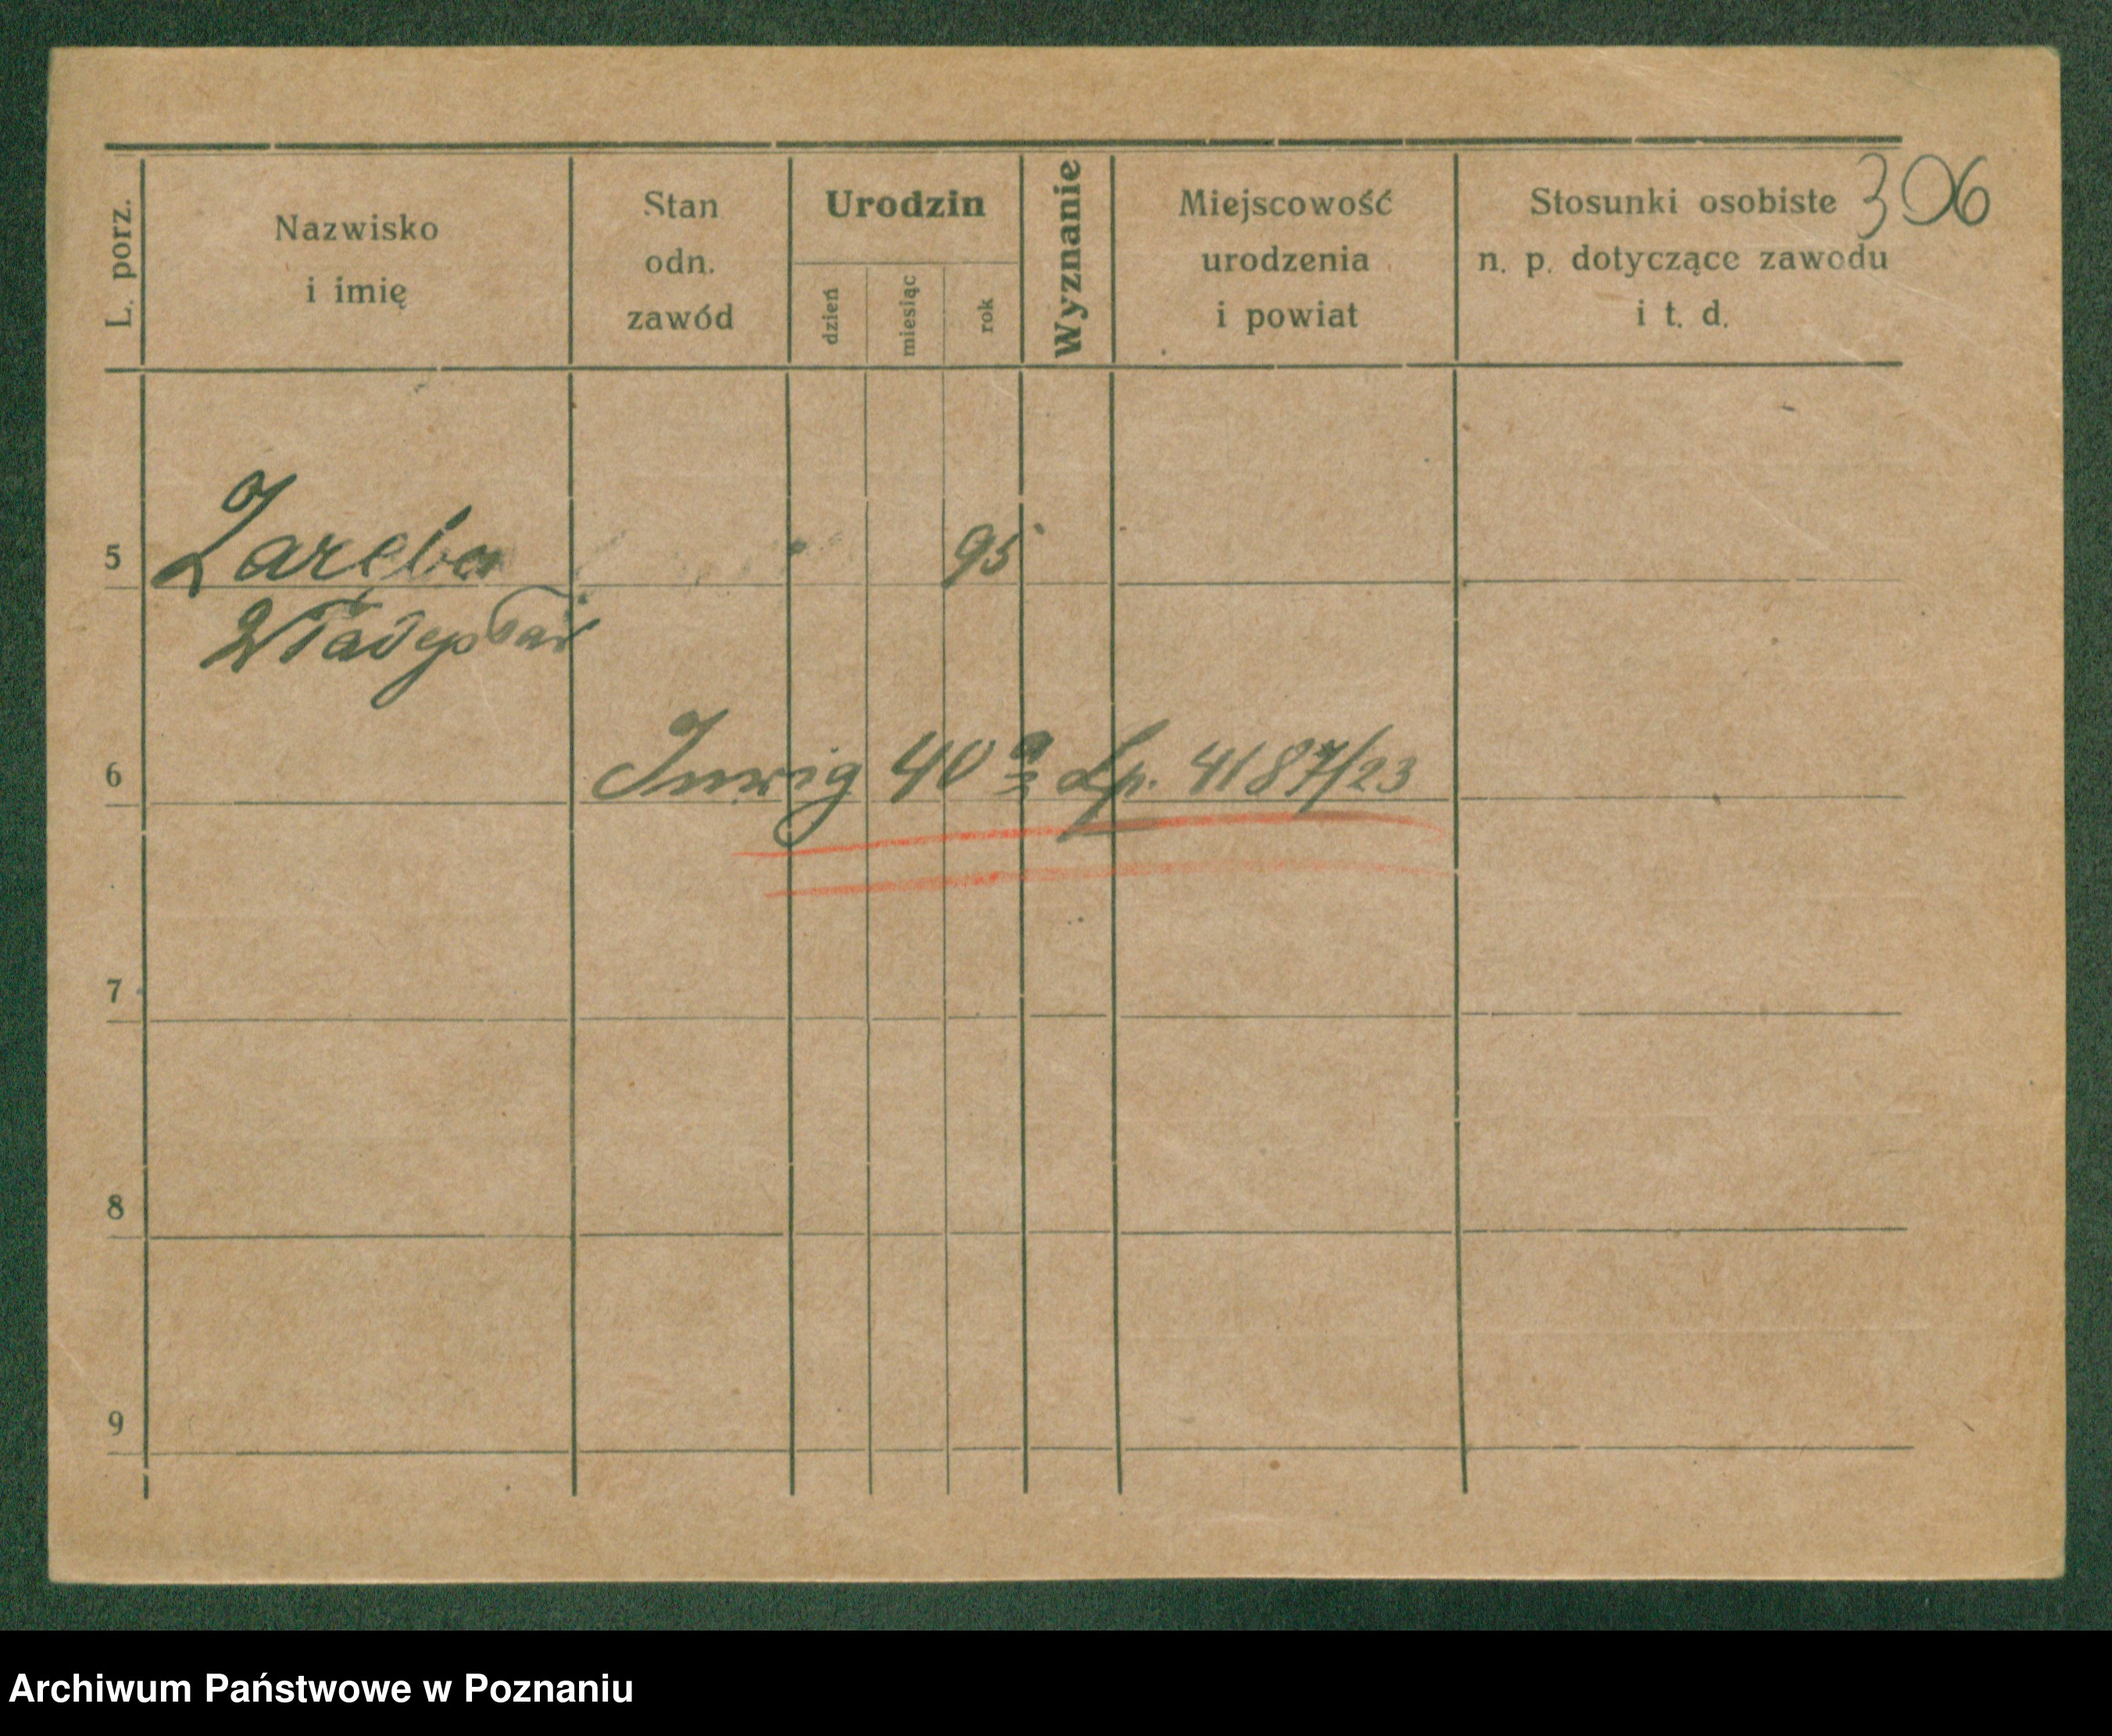 306
L. porz.
Nazwisko
i imię
Stan
odn.
zawód
Urodzin
dzień
miesiąc
rok
Wyznanie
Miejscowość
urodzenia
i powiat
Stosunki osobiste
n. p. dotyczące zawodu
i t. d.
5 Zaręba 95
Władysław
6 40 a Lp. 4187/23
7
8
9
Archiwum Państwowe w Poznaniu